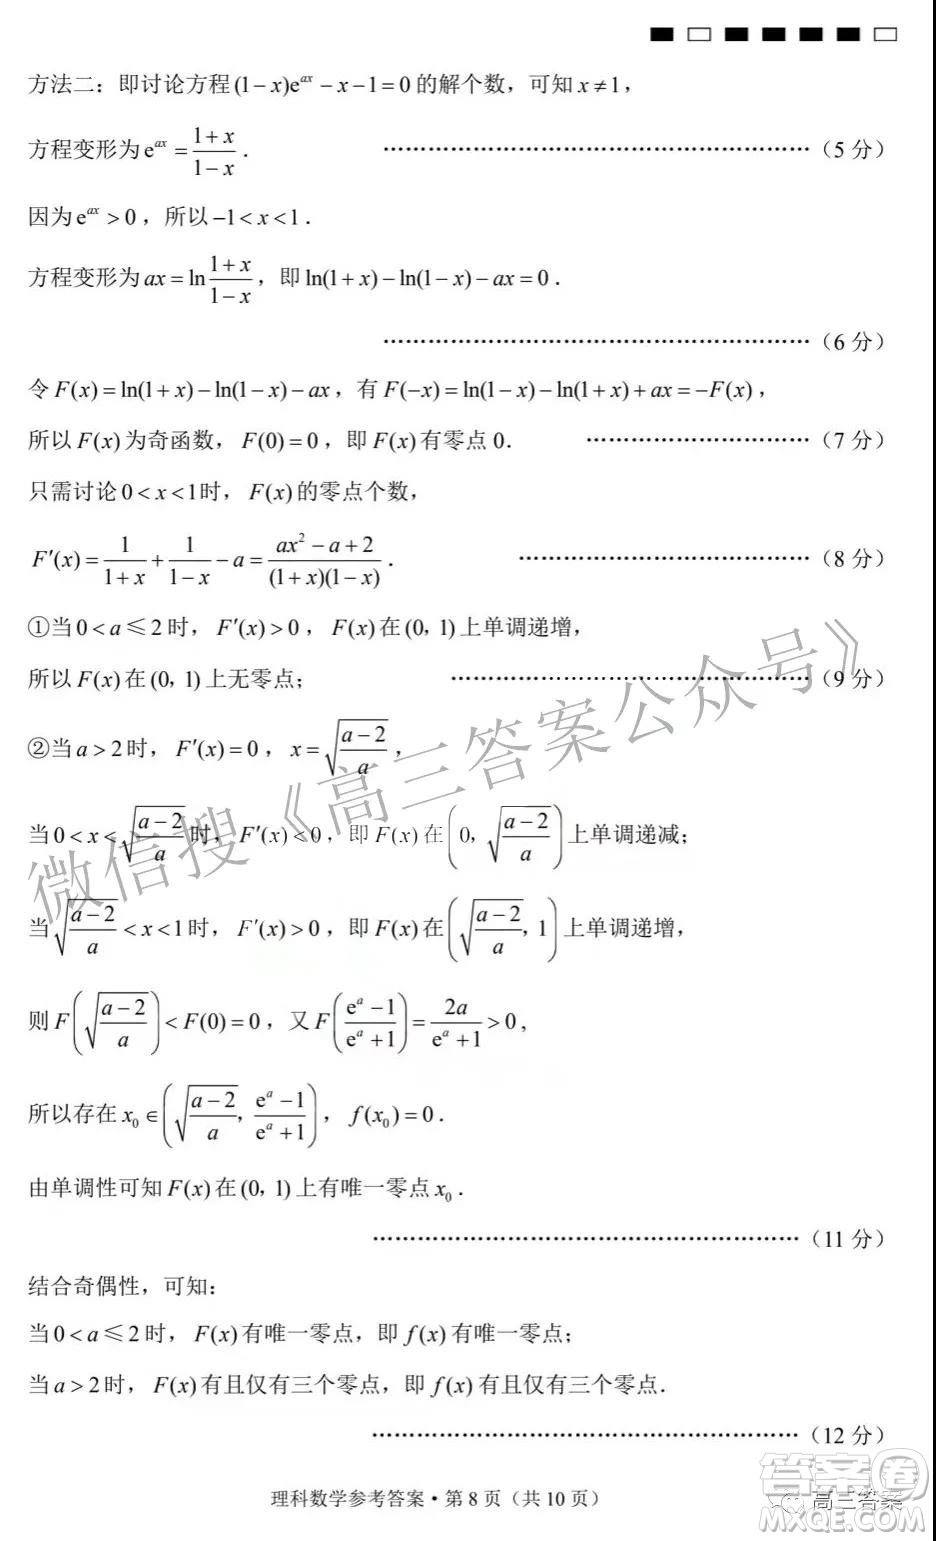 方法二：即讨论方程(1−x)e^{ax}−x−1=0的解个数，可知x≠1，
方程变形为e^{ax}=\frac{1+x}{1−x}． ……………………………………………………（5 分）
因为e^{ax}>0，所以−1<x<1．
方程变形为ax=ln\frac{1+x}{1−x}，即ln(1+x)−ln(1−x)−ax=0．
……………………………………………………（6 分）
令F(x)=ln(1+x)−ln(1−x)−ax，有F(−x)=ln(1−x)−ln(1+x)+ax=−F(x)，
所以F(x)为奇函数，F(0)=0，即F(x)有零点0． …………………………（7 分）
只需讨论0<x<1时，F(x)的零点个数，
F′(x)=\frac{1}{1+x}+\frac{1}{1−x}−a=\frac{ax^2−a+2}{(1+x)(1−x)}． …………………………………（8 分）
①当0<a≤2时，F′(x)>0，F(x)在(0，1)上单调递增，
所以F(x)在(0，1)上无零点； …………………………………………（9 分）
②当a>2时，F′(x)=0，x=\sqrt{\frac{a−2}{a}}，
当0<x<\sqrt{\frac{a−2}{a}}时，F′(x)<0，即F(x)在(0，\sqrt{\frac{a−2}{a}})上单调递减；
当\sqrt{\frac{a−2}{a}}<x<1时，F′(x)>0，即F(x)在(\sqrt{\frac{a−2}{a}}，1)上单调递增，
则F(\sqrt{\frac{a−2}{a}})<F(0)=0，又F(\frac{e^a−1}{e^a+1})=\frac{2a}{e^a+1}>0，
所以存在x_0∈(\sqrt{\frac{a−2}{a}}，\frac{e^a−1}{e^a+1})，f(x_0)=0．
由单调性可知F(x)在(0，1)上有唯一零点x_0．
……………………………………………………（11 分）
结合奇偶性，可知：
当0<a≤2时，F(x)有唯一零点，即f(x)有唯一零点；
当a>2时，F(x)有且仅有三个零点，即f(x)有且仅有三个零点．
……………………………………………………（12 分）
理科数学参考答案·第 8 页（共 10 页）
微信搜《高三答案公众号》
高三答案
答案圈
MXQE.COM